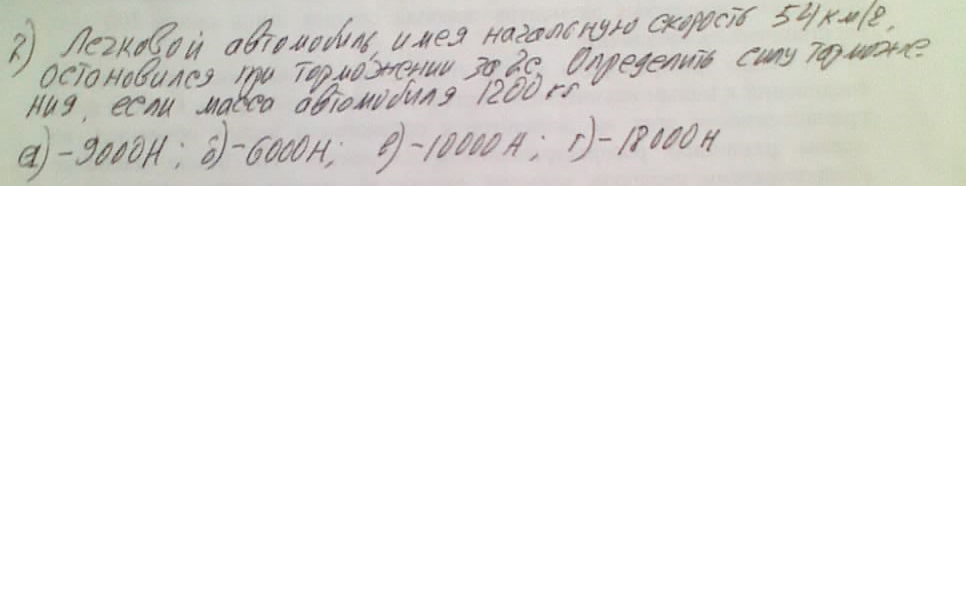 2) Легковой автомобиль, имея начальную скорость 54 км/г,
остановился при торможении за 2с. Определить силу торможе-
ния, если масса автомобиля 1200 кг
а) -9000Н; б) -6000Н; в) -10000 Н; г) -18000Н